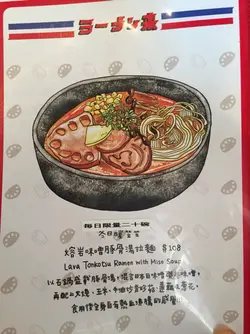 ラーメン来
每日限量二十碗
冬日暖笠笠
熔岩味噌豚骨湯拉麵 $108
Lava Tonkotsu Ramen with Miso Soup
以石鍋盛載豚骨湯，混合日本味噌，
再配以叉燒、玉米、
食用後全身自有熱血沸騰的感覺